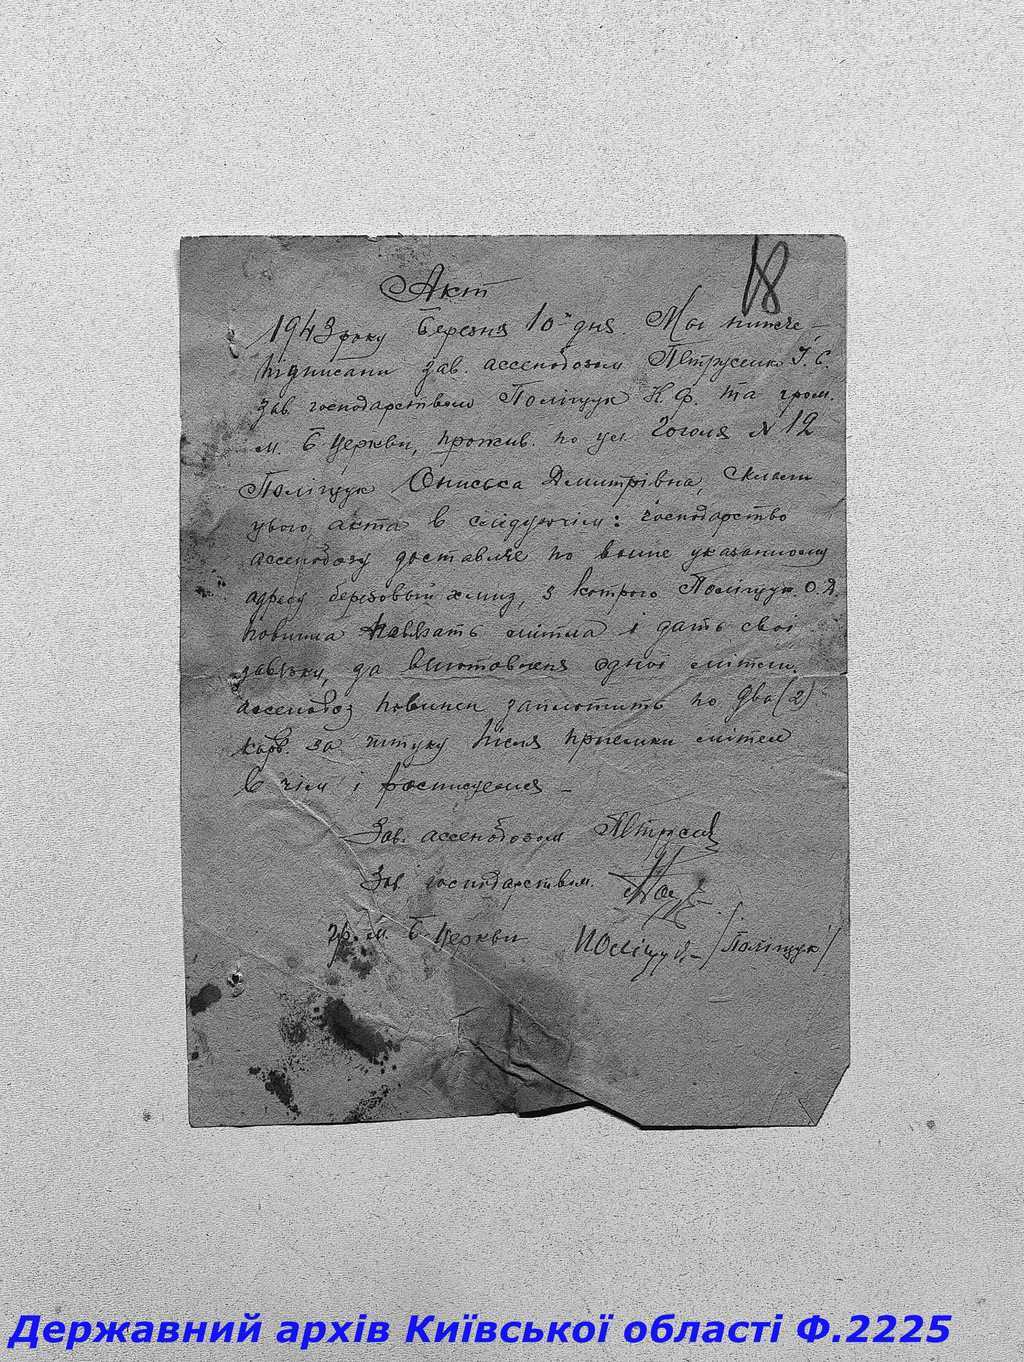 18
Акт
1943 року Березня 10-го дня. Мы нижче-
підписани зав. ассенобозом Петрусенко І. С.
зав. господарством Поліщук Н. Ф. та гром.
м. Б Церкви, прожив. по ул. Гоголя № 12
Поліщук Ониська Дмитрівна, склали
цього акта в слідуючім: господарство
ассенобозу доставляе по выше указанному
адресу березовый хмиз, з которого Поліщук. О. Д.
повинна навязать мітла і дать свої
завязки, за виготовленя одної мітели.
ассенобоз повинен заплотить по два (2)
карб. за штуку після приемки мітел
в чім і росписуемся –
Зав. ассенобозом
Зав господарством.
гр. м. Б Церкви Поліщук – /Поліщук/
Державний архів Київської області Ф.2225